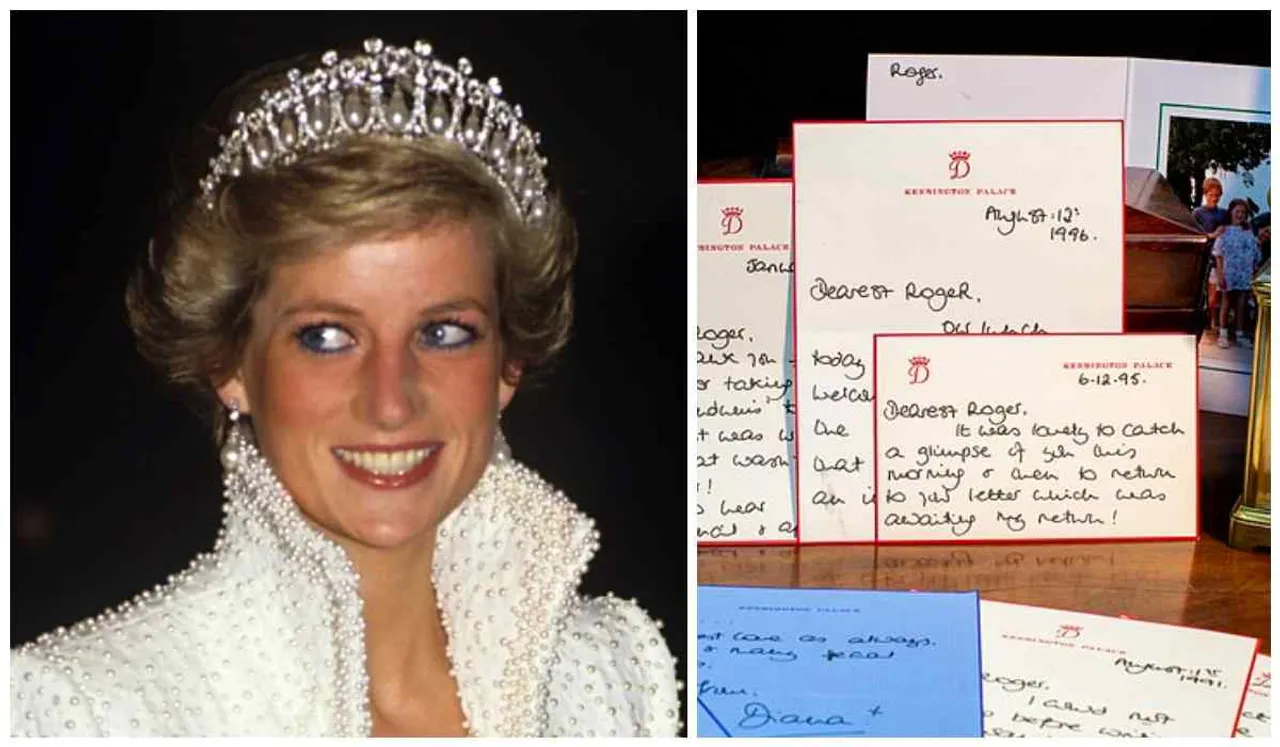 Roger.
D
KENSINGTON PALACE
August:12th
1996.
Dearest Roger,
Our lunch
today
welco
the
that
an i
D
NSINGTON PALACE
Janu
Roger,
ank you
or taking
t was w
at wasn
!
hear
D
KENSINGTON PALACE
6.12.95.
Dearest Roger,
It was lovely to catch
a glimpse of you this
morning & then to return
to your letter which was
awaiting my return!
KENSINGTON PALACE
est love as always.
& many
from.
Diana x
D
KENSINGTON PALACE
August:1st
1991.
Roger,
I could not
before